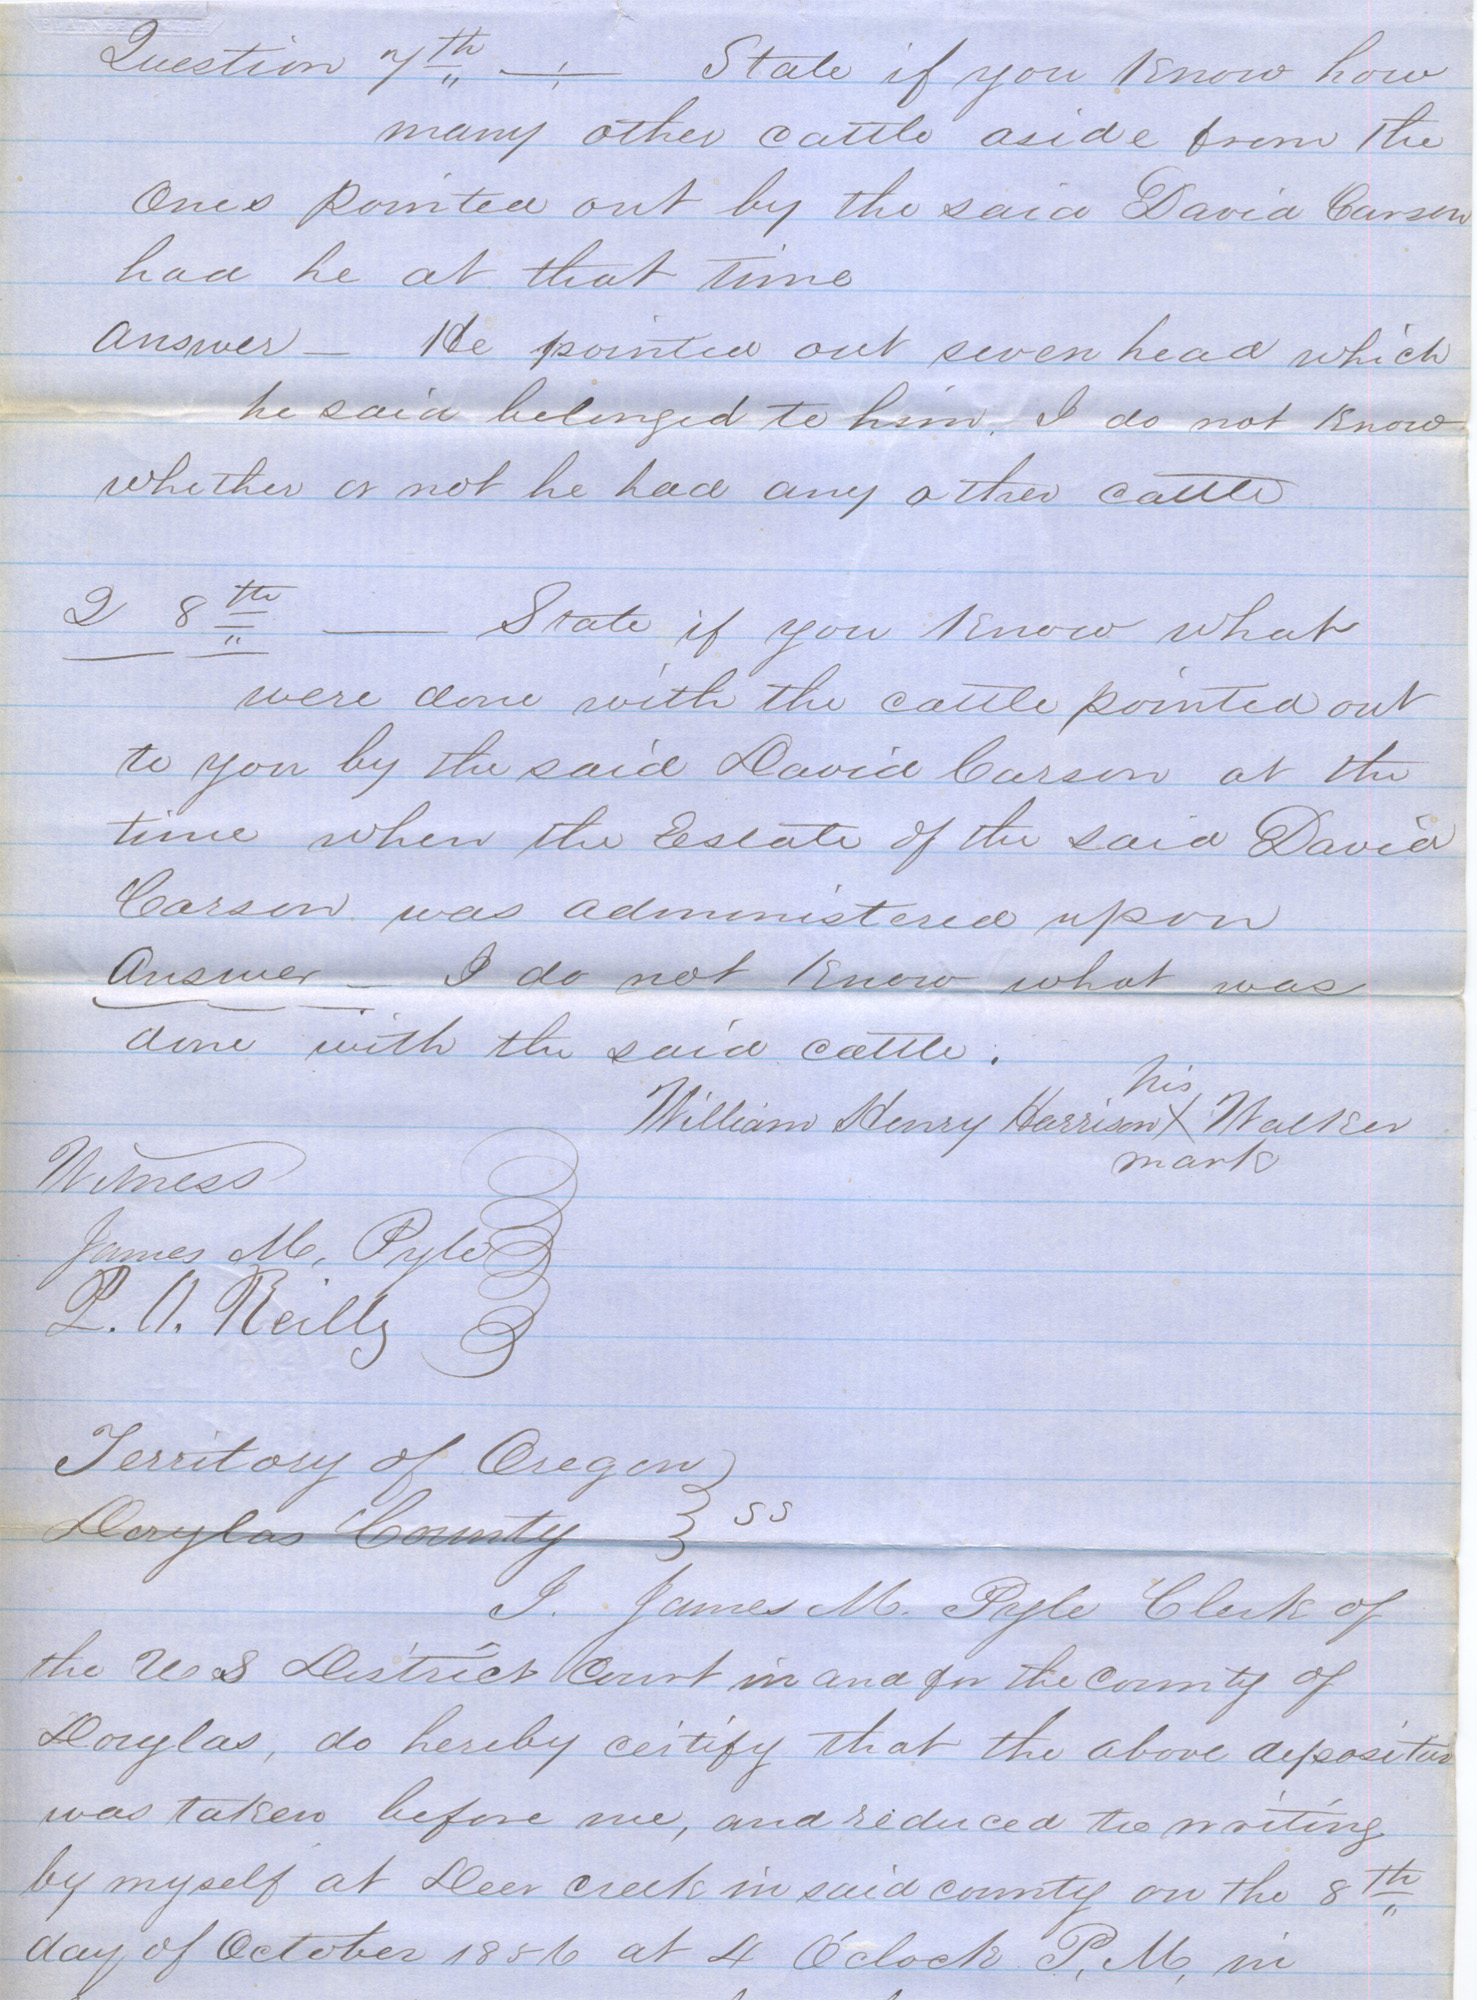 Question 7th — State if you know how
many other cattle aside from the
ones pointed out by the said David Carson
had he at that time
Answer — He pointed out seven head which
he said belonged to him. I do not know
whether or not he had any other cattle
Q 8th — State if you know what
were done with the cattle pointed out
to you by the said David Carson at the
time when the Estate of the said David
Carson was administered upon
Answer — I do not know what was
done with the said cattle.
his
William Henry Harrison X Walker
mark
Witness
James M. Pyle
L. A. Reilly
Territory of Oregon
Douglas County } ss
I. James M. Pyle Clerk of
the U S District Court in and for the county of
Douglas, do hereby certify that the above deposition
was taken before me, and reduced to writing
by myself at Deer creek in said county on the 8th
day of October 1856 at 4 O'clock P. M. in